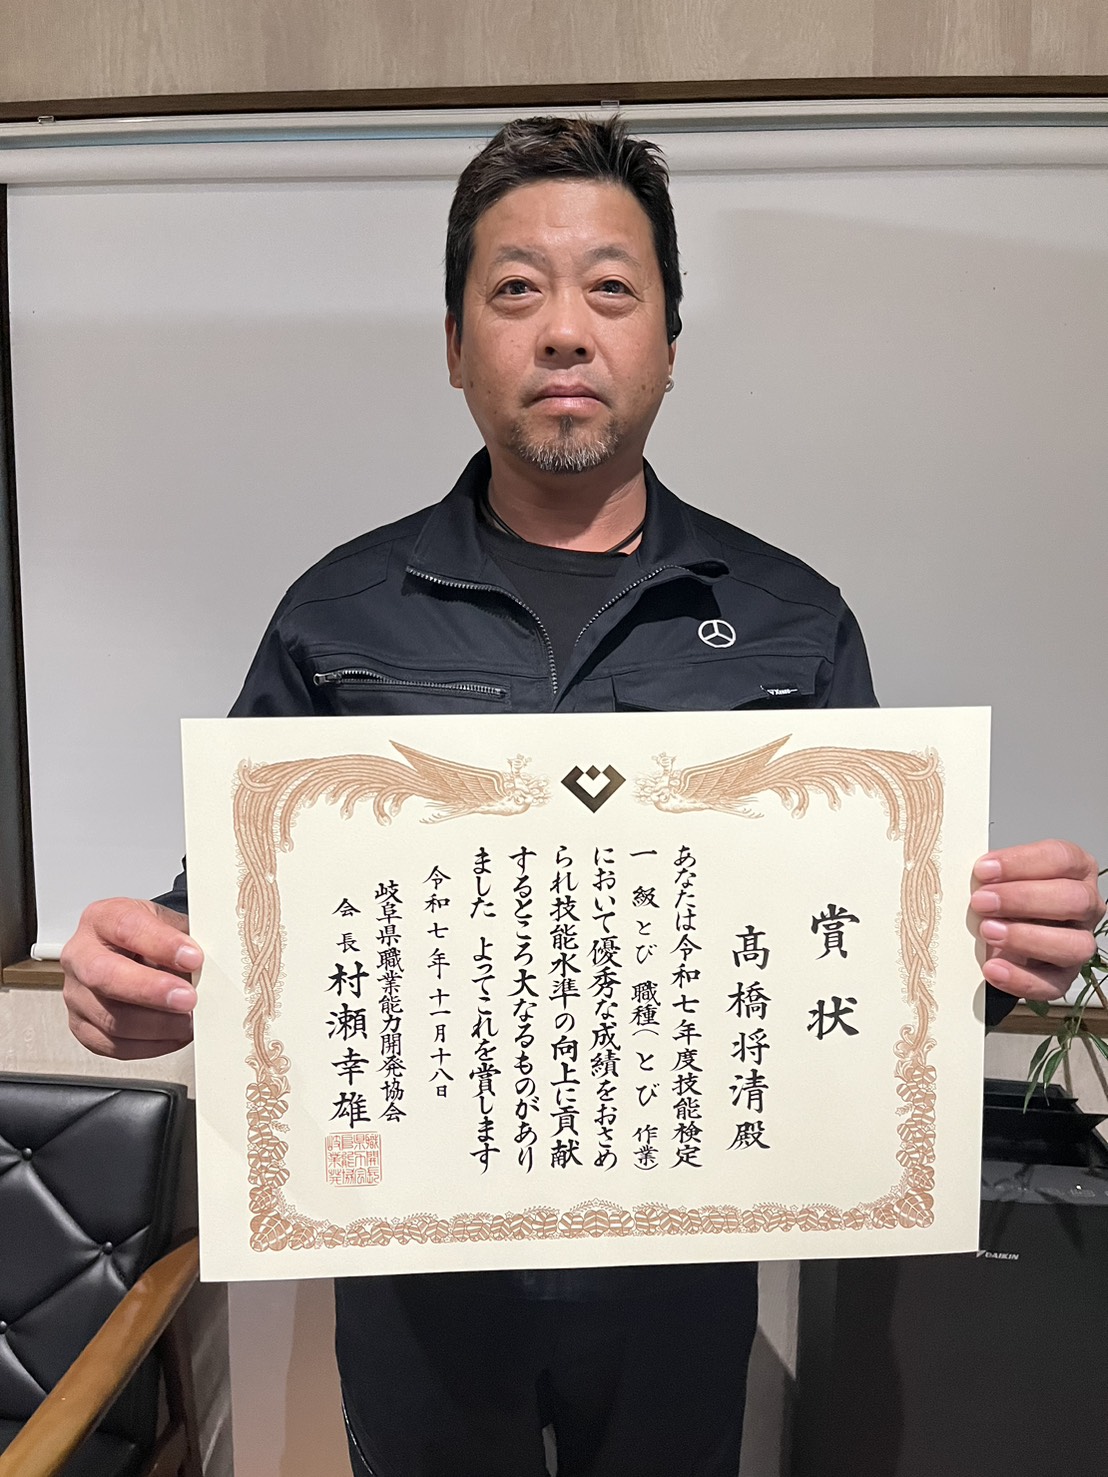 賞状
髙橋将清殿
あなたは令和七年度技能検定
一級とび職種(とび作業)
において優秀な成績をおさめ
られ技能水準の向上に貢献
するところ大なるものがあり
ました よってこれを賞します
令和七年十一月十八日
岐阜県職業能力開発協会
会長 村瀬幸雄
DAIKIN